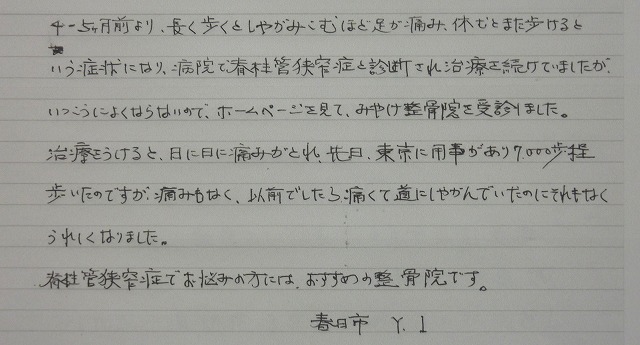 4-5ヶ月前より、長く歩くとしゃがみこむほど足が痛み、休むとまた歩けると
いう症状になり、病院で脊柱管狭窄症と診断され治療を続けていましたが、
いっこうによくならないので、ホームページを見て、みやけ整骨院を受診しました。
治療をうけると、日に日に痛みがとれ、先日、東京に用事があり7,000歩程
歩いたのですが、痛みもなく、以前でしたら痛くて道にしゃがんでいたのにそれもなく
うれしくなりました。
脊柱管狭窄症でお悩みの方には、おすすめの整骨院です。
春日市 Y.I